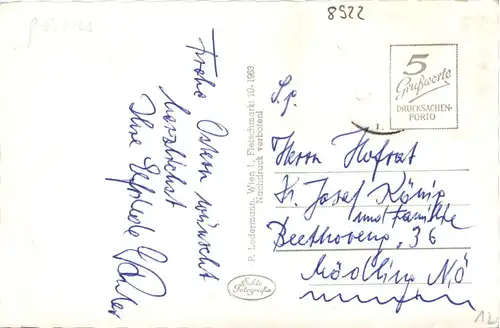 8922
Frohe Ostern wünscht
herzlichst
Ihre Elfriede
P. Ledermann, Wien I., Fleischmarkt 20 - 1963
Nachdruck verboten!
Echte
Fotografie
5
Grußworte
DRUCKSACHEN-
PORTO
S. p.
Herrn Hofrat
Josef König
und Familie
Beethoveng. 36
Mödling N.Ö